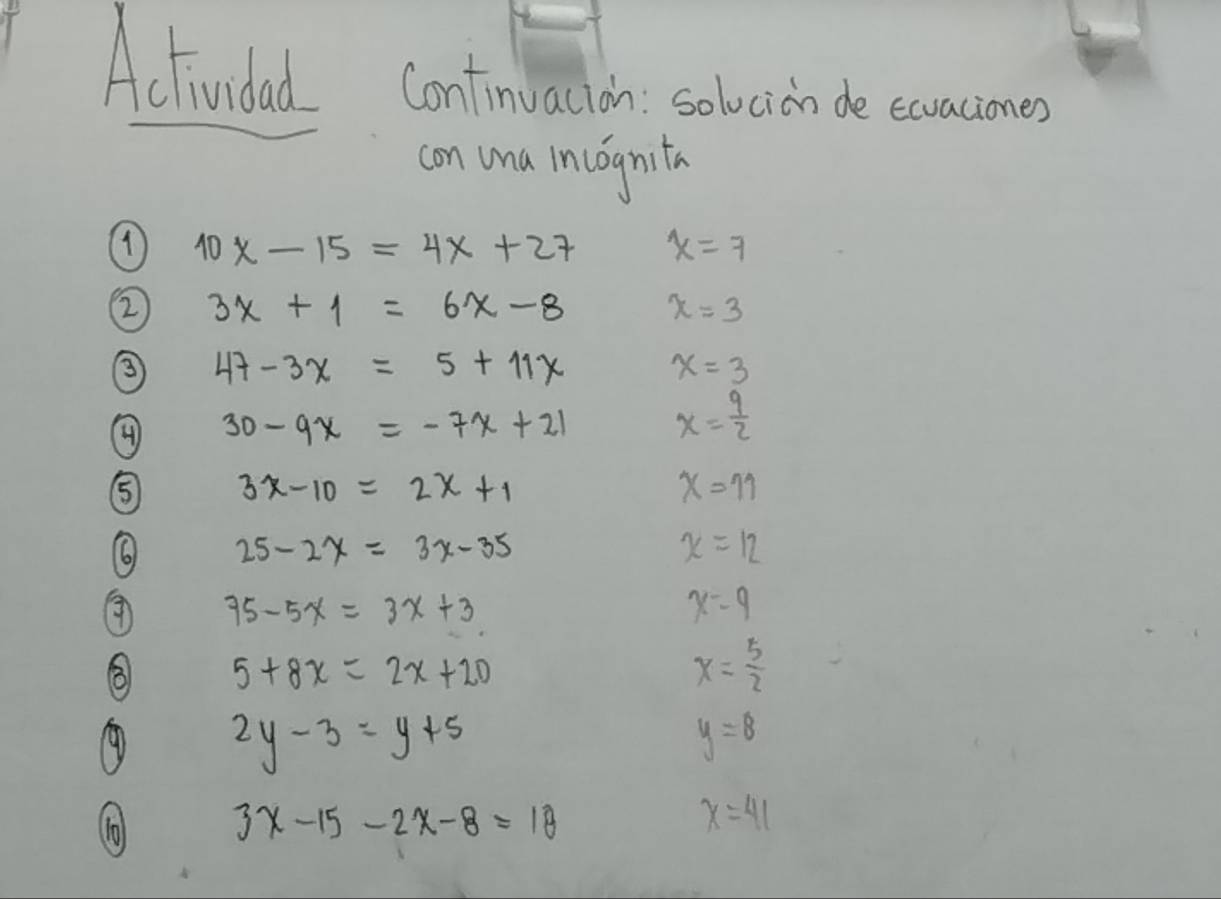 Actividad Continuación: Solución de Ecuaciones
con una incógnita
① 10x - 15 = 4x + 27 x = 7
② 3x + 1 = 6x - 8 x = 3
③ 47 - 3x = 5 + 11x x = 3
④ 30 - 9x = -7x + 21 x = 9/2
⑤ 3x - 10 = 2x + 1 x = 11
⑥ 25 - 2x = 3x - 35 x = 12
⑦ 75 - 5x = 3x + 3 x = 9
⑧ 5 + 8x = 2x + 20 x = 5/2
⑨ 2y - 3 = y + 5 y = 8
⑩ 3x - 15 - 2x - 8 = 18 x = 41